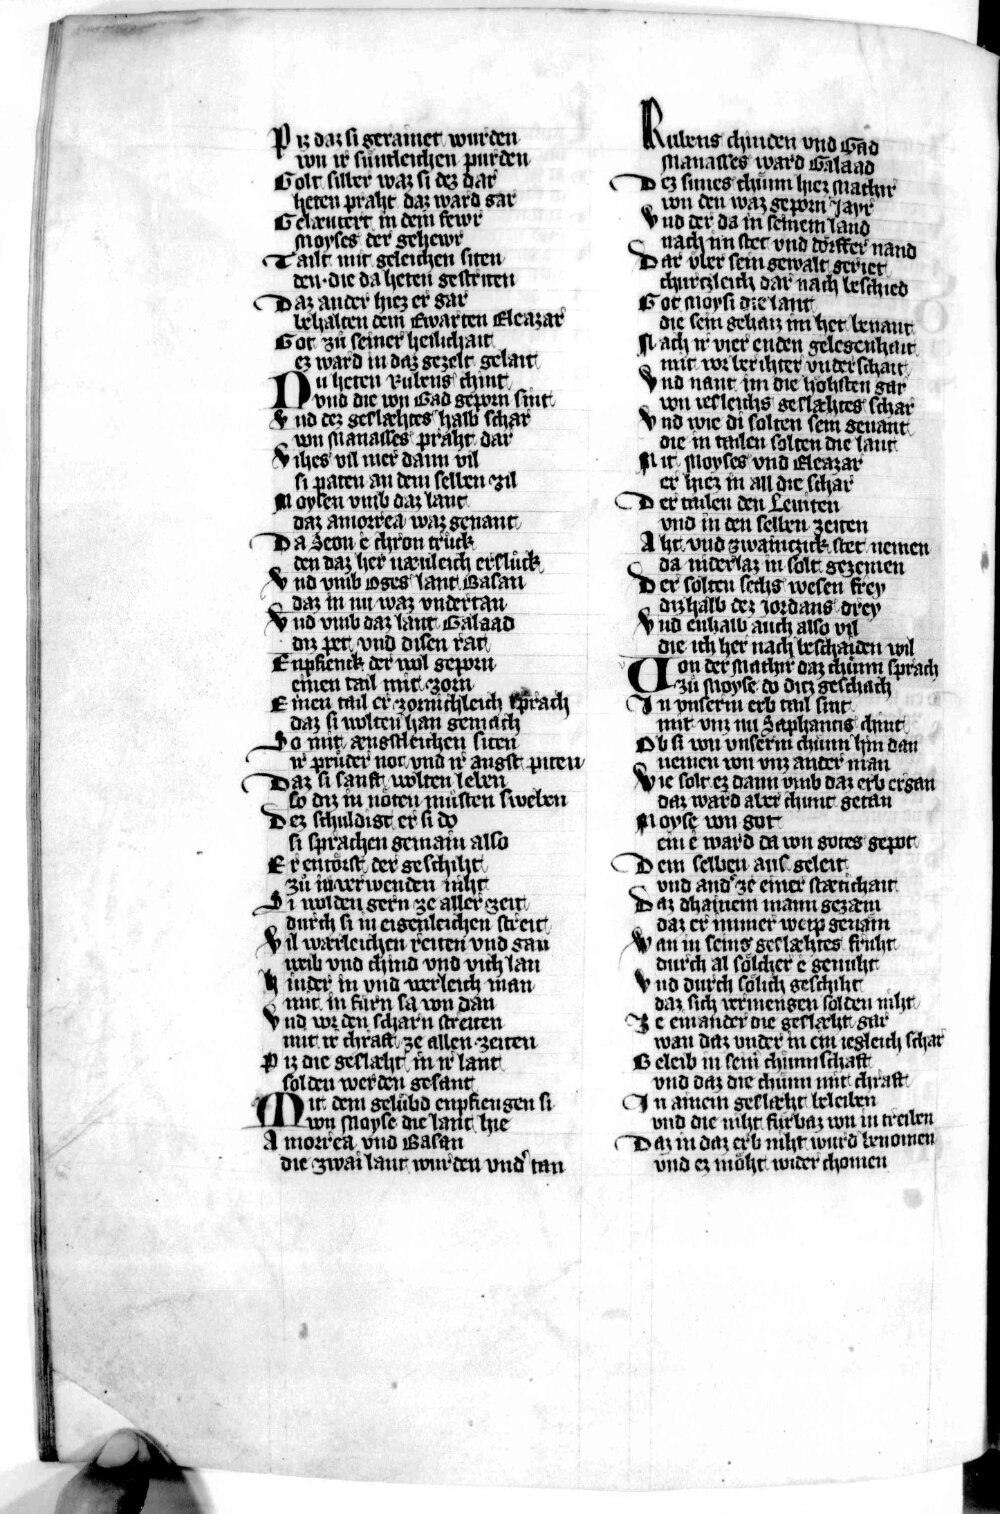 Piz daz si gerainet wurden
von ir süntleichen purden
Golt silber waz si dez dar
heten praht daz ward gar
Gelæutert in dem fewr
Moyses der gehewr
Tailt mit geleichen siten
den · die da heten gestriten
Daz ander hiez er gar
behalten dem Ewarten Eleazar
Got zů seiner heilichait
ez ward in daz gezelt gelait
Nu heten Rubens chint
vnd die von Gad geporn sint
Vnd dez geslæhtes halb schar
von Manasses praht dar
Vihes vil mer dann vil
si paten an dem selben zil
Moysen vmb daz lant
daz amorrea waz genant
Da Seon e chron trůck
den daz her næuleich erslůck
Vnd vmb Oges lant Basan
daz in nu waz vndertan
Vnd vmb daz lant Galaad
diz pet vnd disen rat
Enpfienck der wol geporn
einen tail mit zorn
Einen tail er zornichleich sprach
daz si wolten han gemach
So mit ængstleichen siten
ir prüder not vnd ir angst piten
Daz si sanft wolten leben
so diz in nöten müsten sweben
Dez schuldigt er si do
si sprachen gemain also
Er entörst der geschiht
zů in verwenden niht
Si wolden gern ze aller zeit
durch si in eigenleichen streit
Vil wærleichen reiten vnd gan
weib vnd chind vnd vich lan
Hinder in vnd werleich man
mit in fürn sa von dan
Vnd vor den scharn streiten
mit ir chraft ze allen zeiten
Piz die geslæht in ir lant
solden werden gesant
Mit dem gelübd enpfiengen si
von Moyse die lant hie
Amorrea vnd Basan
die zwai lant wurden vnd' tan
Rubens chinden vnd Gad
Manasses ward Galaad
Dez sunes chünn hiez Machir
von den waz geporn Jayr
Vnd der da in seinem land
nach im stet vnd dörffer nand
Dar vber sein gewalt geriet
churtzleich dar nach beschied
Got Moysi die lant
die sein gehaiz im het benant
Nach ir vier enden gelegenhait
mit vor berihter vnderschait
Vnd nant im die höhsten gar
von iesleichs geslæhtes schar
Vnd wie di solten sein genant
die in tailen solten die lant
Mit Moyses vnd Eleazar
er hiez in all die schar
Der tailen den Leuiten
vnd in den selben zeiten
Aht vnd zwaintzick stet nemen
da niderlaz in solt gezemen
Der solten sechs wesen frey
dizhalb dez Jordans drey
Vnd enhalb auch also vil
die ich her nach beschaiden wil
Von der Machir daz chünn sprach
zů Moyse do ditz geschach
In vnserm erb tail sint
mit vnz nu Saphantis chint
Ob si von vnserm chünn hin dan
nemen von vnz ander man
Wie solt ez dann vmb daz erb ergan
daz ward aber chunt getan
Moyse von got
ein e ward da von gotes gepot
Dem selben aus geleit
vnd and' ze einer stætichait
Daz dhainem mann gezæm
daz er immer weip genäm
Wan in seins geslæhtes fruht
durch al sölcher e genuht
Vnd durch sölich geschiht
daz sich vermengen solden niht
Ze einander die geslæht gar
wan daz vnder in ein iegleich schar
Beleib in seim chünnschaft
vnd daz die chünn mit chraft
In ainem geslæht beleiben
vnd die niht fürbaz von in treiben
Daz in daz erb niht wurd benomen
vnd ez möht wider chomen